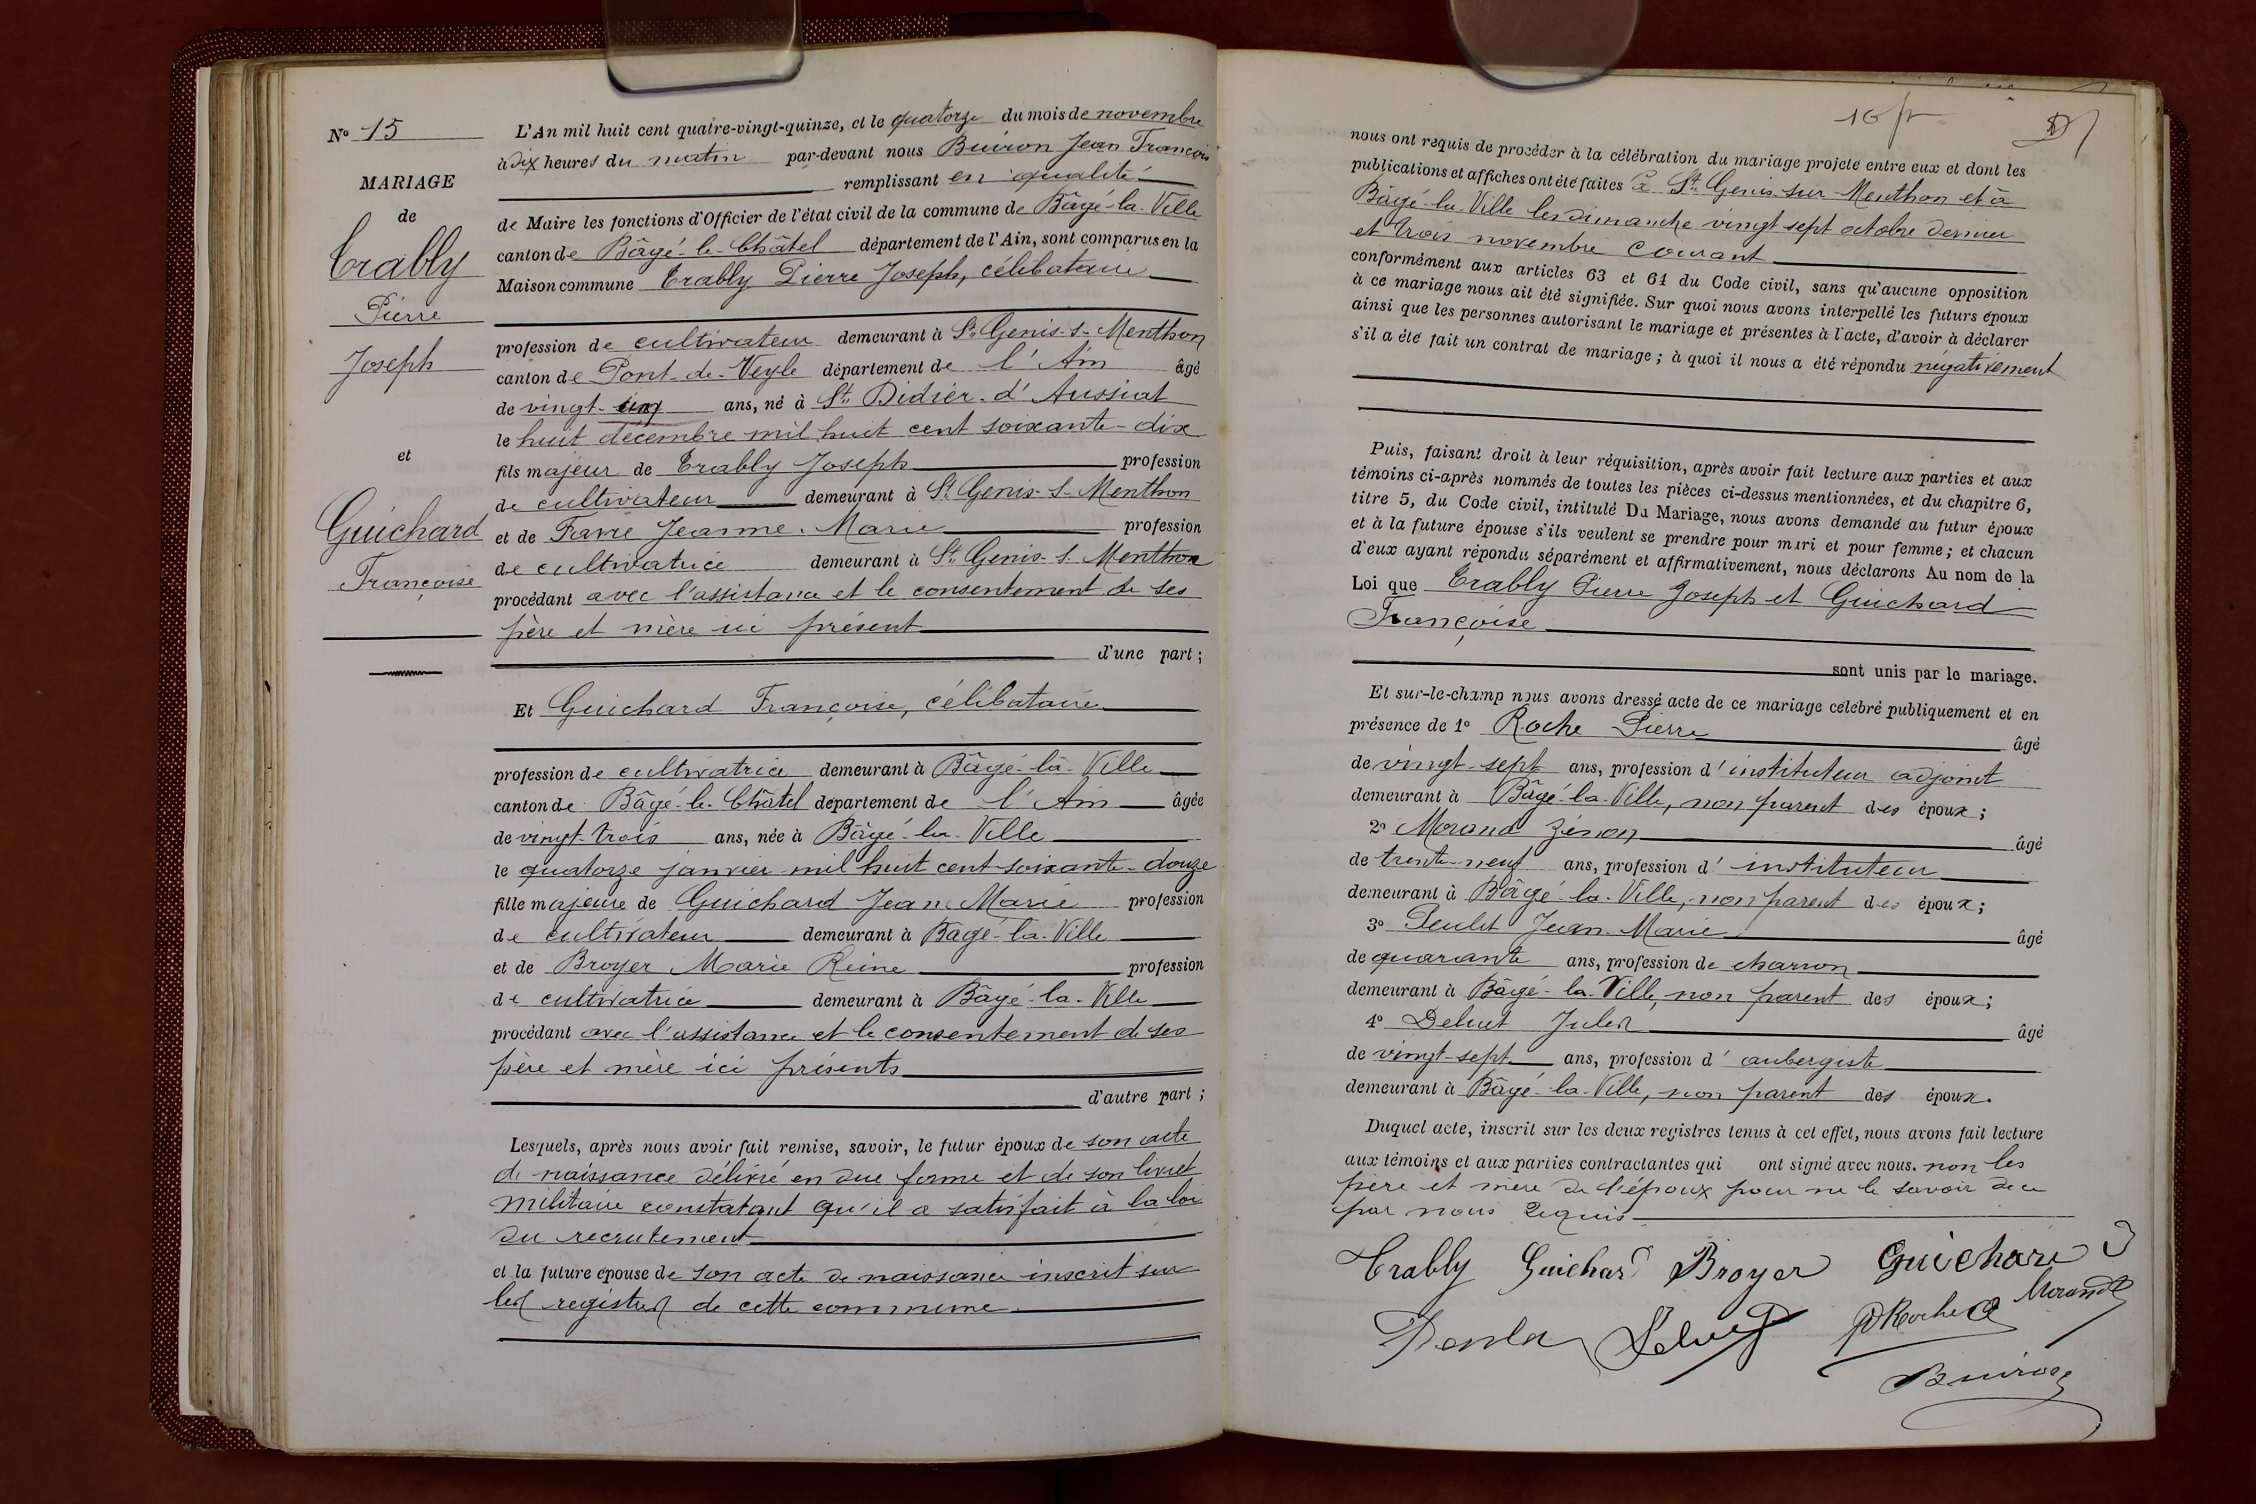 N° 15
MARIAGE
de
Trably
Pierre
Joseph
et
Guichard
Françoise
L'An mil huit cent quatre-vingt-quinze, et le quatorze du mois de novembre
à dix heures du matin par-devant nous Buiron Jean François
remplissant en qualité
de Maire les fonctions d'Officier de l'état civil de la commune de Bâgé-la-Ville
canton de Bâgé-le-Châtel département de l'Ain, sont comparus en la
Maison commune Trably Pierre Joseph, célibataire
profession de cultivateur demeurant à St Genis-s-Menthon
canton de Pont-de-Veyle département de l'Ain âgé
de vingt- ans, né à St Didier-d'Aussiat
le huit décembre mil huit cent soixante-dix
fils majeur de Trably Joseph profession
de cultivateur demeurant à St Genis-s-Menthon
et de Favre Jeanne-Marie profession
de cultivatrice demeurant à St Genis-s-Menthon
procédant avec l'assistance et le consentement de ses
père et mère ici présent
d'une part;
Et Guichard Françoise, célibataire
profession de cultivatrice demeurant à Bâgé-la-Ville
canton de Bâgé-le-Châtel département de l'Ain âgée
de vingt-trois ans, née à Bâgé-la-Ville
le quatorze janvier mil huit cent soixante-douze
fille majeure de Guichard Jean Marie profession
de cultivateur demeurant à Bâgé-la-Ville
et de Broyer Marie Reine profession
de cultivatrice demeurant à Bâgé-la-Ville
procédant avec l'assistance et le consentement de ses
père et mère ici présents
d'autre part;
Lesquels, après nous avoir fait remise, savoir, le futur époux de son acte
de naissance délivré en due forme et de son livret
militaire constatant qu'il a satisfait à la loi
du recrutement
et la future épouse de son acte de naissance inscrit sur
les registres de cette commune
nous ont requis de procéder à la célébration du mariage projeté entre eux et dont les
publications et affiches ont été faites à St Genis-sur-Menthon et à
Bâgé-la-Ville les dimanche vingt sept octobre dernier
et trois novembre courant
conformément aux articles 63 et 64 du Code civil, sans qu'aucune opposition
à ce mariage nous ait été signifiée. Sur quoi nous avons interpellé les futurs époux
ainsi que les personnes autorisant le mariage et présentes à l'acte, d'avoir à déclarer
s'il a été fait un contrat de mariage; à quoi il nous a été répondu négativement
Puis, faisant droit à leur réquisition, après avoir fait lecture aux parties et aux
témoins ci-après nommés de toutes les pièces ci-dessus mentionnées, et du chapitre 6,
titre 5, du Code civil, intitulé Du Mariage, nous avons demandé au futur époux
et à la future épouse s'ils veulent se prendre pour mari et pour femme; et chacun
d'eux ayant répondu séparément et affirmativement, nous déclarons Au nom de la
Loi que Trably Pierre Joseph et Guichard
Françoise
sont unis par le mariage.
Et sur-le-champ nous avons dressé acte de ce mariage célébré publiquement et en
présence de 1° Roche Pierre âgé
de vingt-sept ans, profession d'instituteur adjoint
demeurant à Bâgé-la-Ville, non parent des époux;
2° Morand Zénon âgé
de trente-neuf ans, profession d'instituteur
demeurant à Bâgé-la-Ville, non parent des époux;
3° Peulet Jean-Marie âgé
de quarante ans, profession de charron
demeurant à Bâgé-la-Ville, non parent des époux;
4° Deluet Jules âgé
de vingt-sept ans, profession d'aubergiste
demeurant à Bâgé-la-Ville, non parent des époux.
Duquel acte, inscrit sur les deux registres tenus à cet effet, nous avons fait lecture
aux témoins et aux parties contractantes qui ont signé avec nous. non les
père et mère de l'époux pour ne le savoir de ce
par nous requis
Trably Guichard Broyer Guichard
P Roche Morand
Buiron